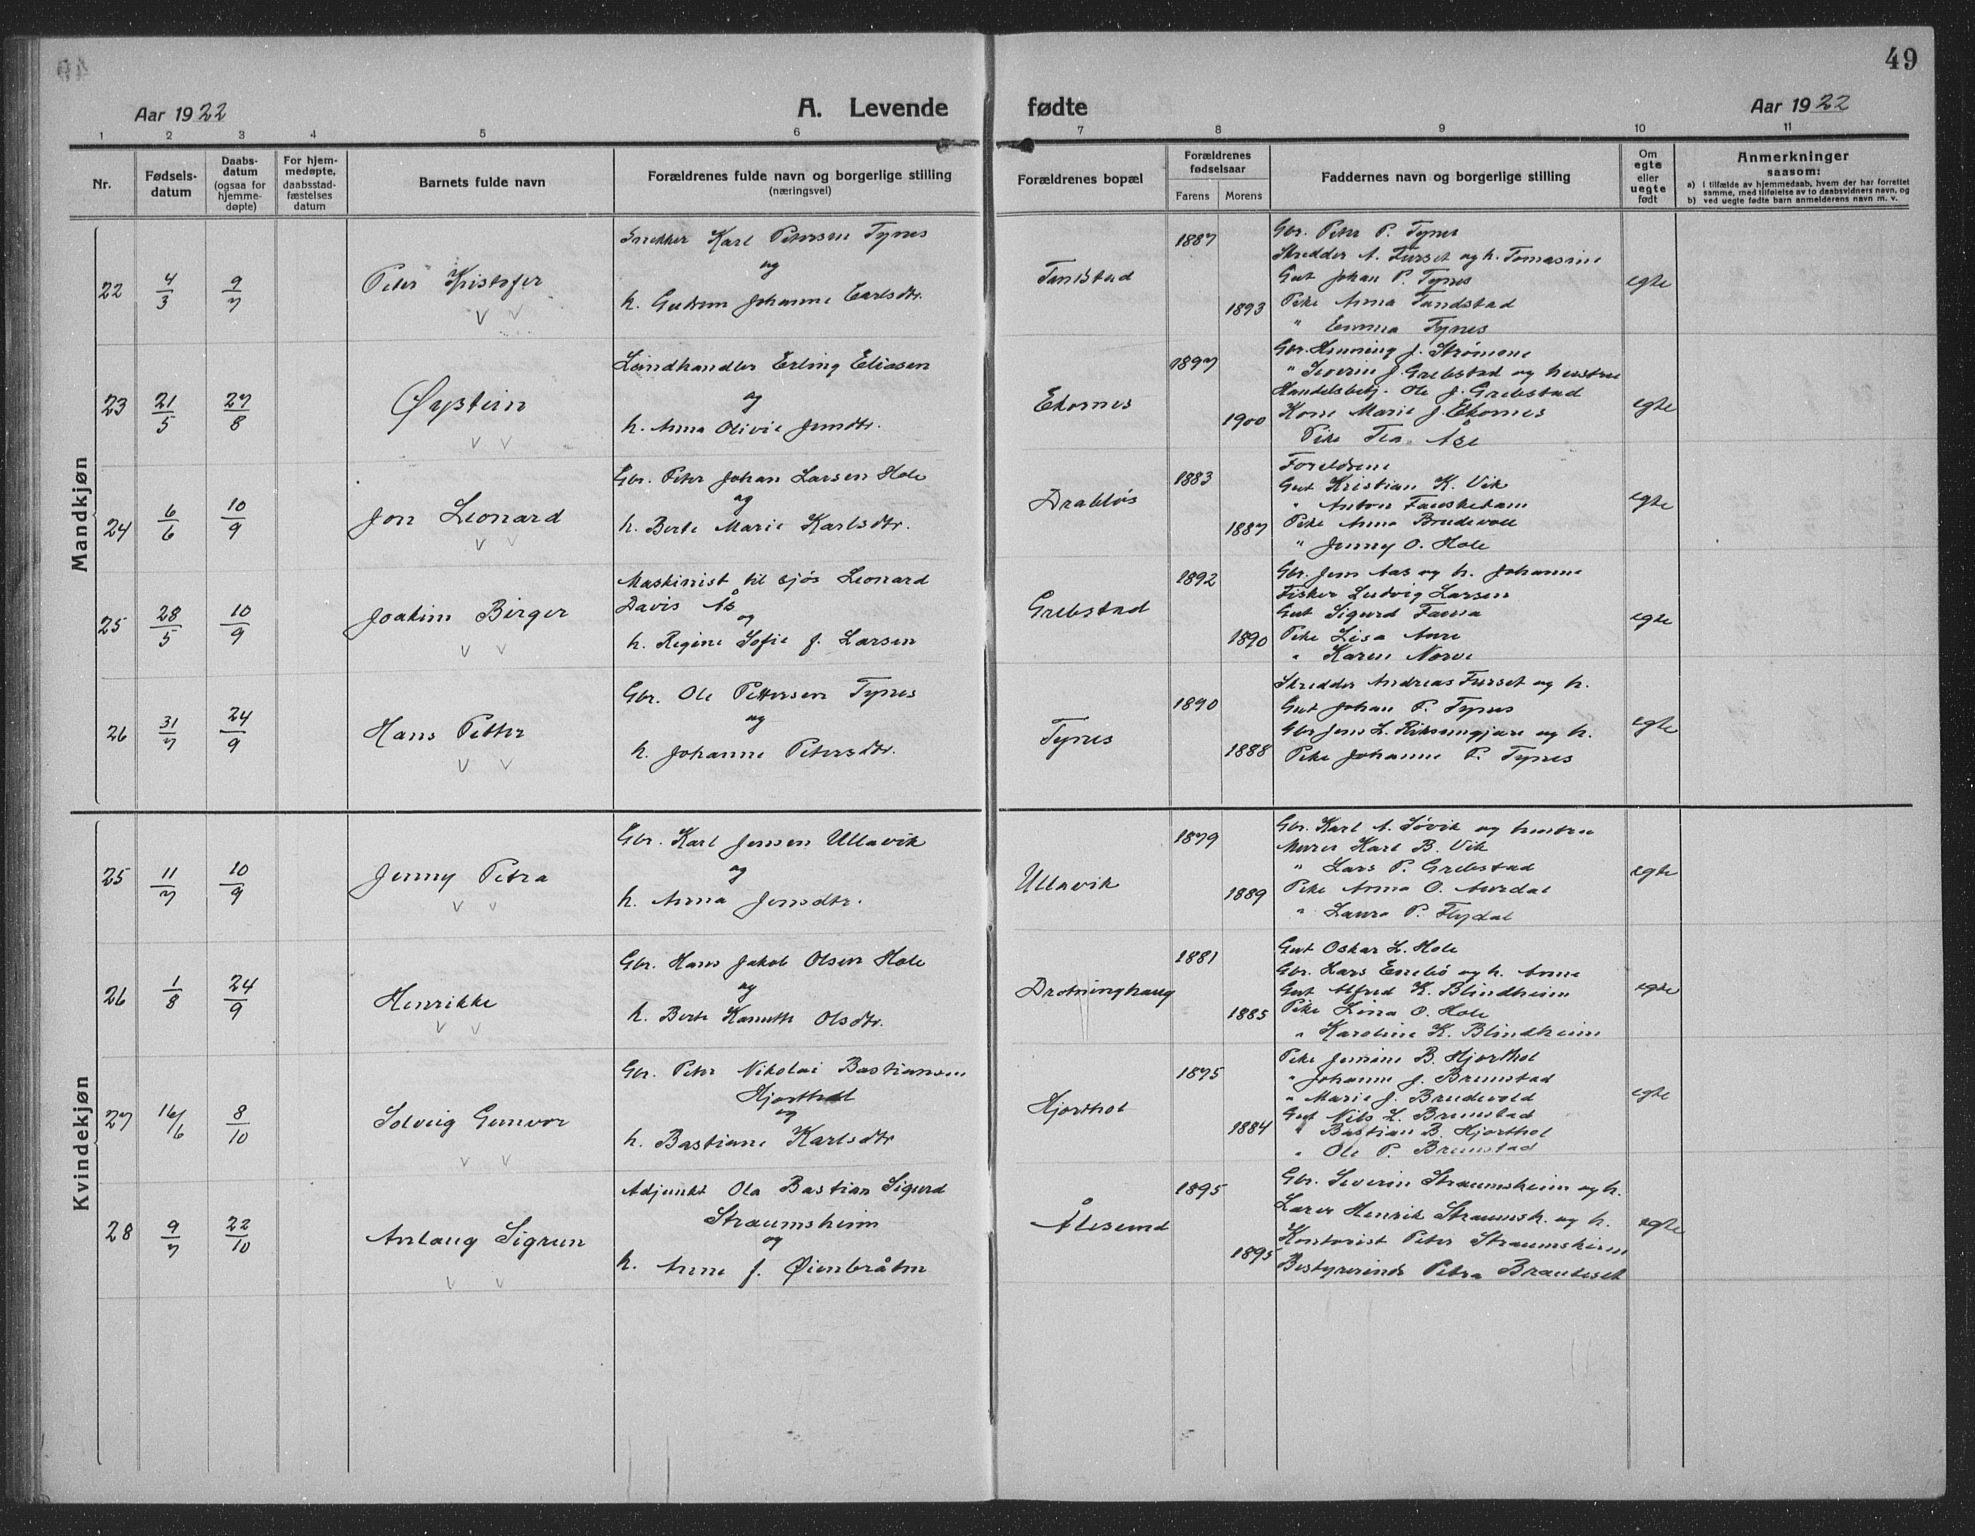 49
Aar 1922
A. Levende fødte
Aar 1922
1 2 3 4 5 6 7 8 9 10 11
Nr.
Fødsels-
datum
Daabs-
datum
(ogsaa for
hjemme-
døpte)
For hjem-
medøpte,
daabsstad-
fæstelses
datum
Barnets fulde navn
Forældrenes fulde navn og borgerlige stilling
(næringsvei)
Forældrenes bopæl
Forældrenes
fødselsaar
Farens Morens
Faddernes navn og borgerlige stilling
Om
egte
eller
uegte
født
Anmerkninger
saasom:
a) i tilfælde av hjemmedaab, hvem der har forrettet
samme, med tilføielse av to daabsvidners navn, og
b) ved uegte fødte barn anmelderens navn m. v.
Mandkjøn
22 4/3 9/7 Peter Kristofer
Snekker Karl Petersen Tynes
og
h. Gudrun Johanne Earlsdtr.
Tandstad
1887
1893
Gbr. Peter P. Tynes
Skredder A. Furset og h. Tomasine
Gut Johan P. Tynes
Pike Anna Tandstad
" Emma Tynes
egte
23 21/5 27/8 Øystein
Landhandler Erling Eliasen
og
h. Anna Olivie Jensdtr.
Ekornes
1897
1900
Gbr. Henning J. Strømme
" Severin J. Grebstad og hustru
Handelsbetj. Ole J. Grebstad
Kone Marie J. Ekornes
Pike Tea Åse
egte
24 6/6 10/9 Jon Leonard
Gbr. Peter Johan Larsen Hole
og
h. Berte Marie Karlsdtr.
Drabløs
1883
1887
Foreldrene
Gut Kristian K. Vik
" Anton Fauskedam
Pike Anna Brudevoll
" Jenny O. Hole
egte
25 28/5 10/9 Joakim Birger
Maskinist til sjøs Leonard
Davis Ås
og
h. Regine Sofie f. Larsen
Grebstad
1892
1890
Gbr. Jens Aas og h. Johanne
Fisker Ludvig Larsen
Gut Sigurd
Pike Lisa Aure
" Karen Norve
egte
26 31/7 24/9 Hans Petter
Gbr. Ole Pettersen Tynes
og
h. Johanne Petersdtr.
Tynes
1890
1888
Skredder Andreas Furset og h.
Gut Johan P. Tynes
Gbr Jens L. og h.
Pike Johanne P. Tynes
egte
Kvindekjøn
25 11/7 10/9 Jenny Petra
Gbr. Karl Jensen Ullavik
og
h. Anna Jensdtr.
Ullavik
1879
1889
Gbr. Karl A. Søvik og hustru
Murer Karl B. Vik
" Lars P. Grebstad
Pike Anna O. Aurdal
" Laura P. Flydal
egte
26 1/8 24/9 Henrikke
Gbr. Hans Jakob Olsen Hole
og
h. Berte Olsdtr.
Drotninghaug
1881
1885
Gut Oskar L. Hole
Gbr. Lars Enebø og h. Anne
Gut Alfred K. Blindheim
Pike Lina O. Hole
" Karoline K. Blindheim
egte
27 16/6 8/10 Solveig Gunvor
Gbr. Peter Nikolai Bastiansen
Hjorthol
og
h. Bastiane Karlsdtr
Hjorthol
1875
1884
Pike Jensine B. Hjorthol
" Johanne J. Brunstad
" Marie J. Brudevold
Gut Nils L. Brunstad
" Bastian B. Hjorthol
" Ole P. Brunstad
egte
28 9/7 22/10 Aslaug Sigrun
Adjunkt Ola Bastian Sigurd
Straumsheim
og
h. Anne f. Øienbråten
Ålesund
1895
1895
Gbr. Severin Straumsheim og h.
Lærer Henrik Straumsh. og h.
Kontorist Peter Straumsheim
Bestyrerinde Petra Brauteset
egte